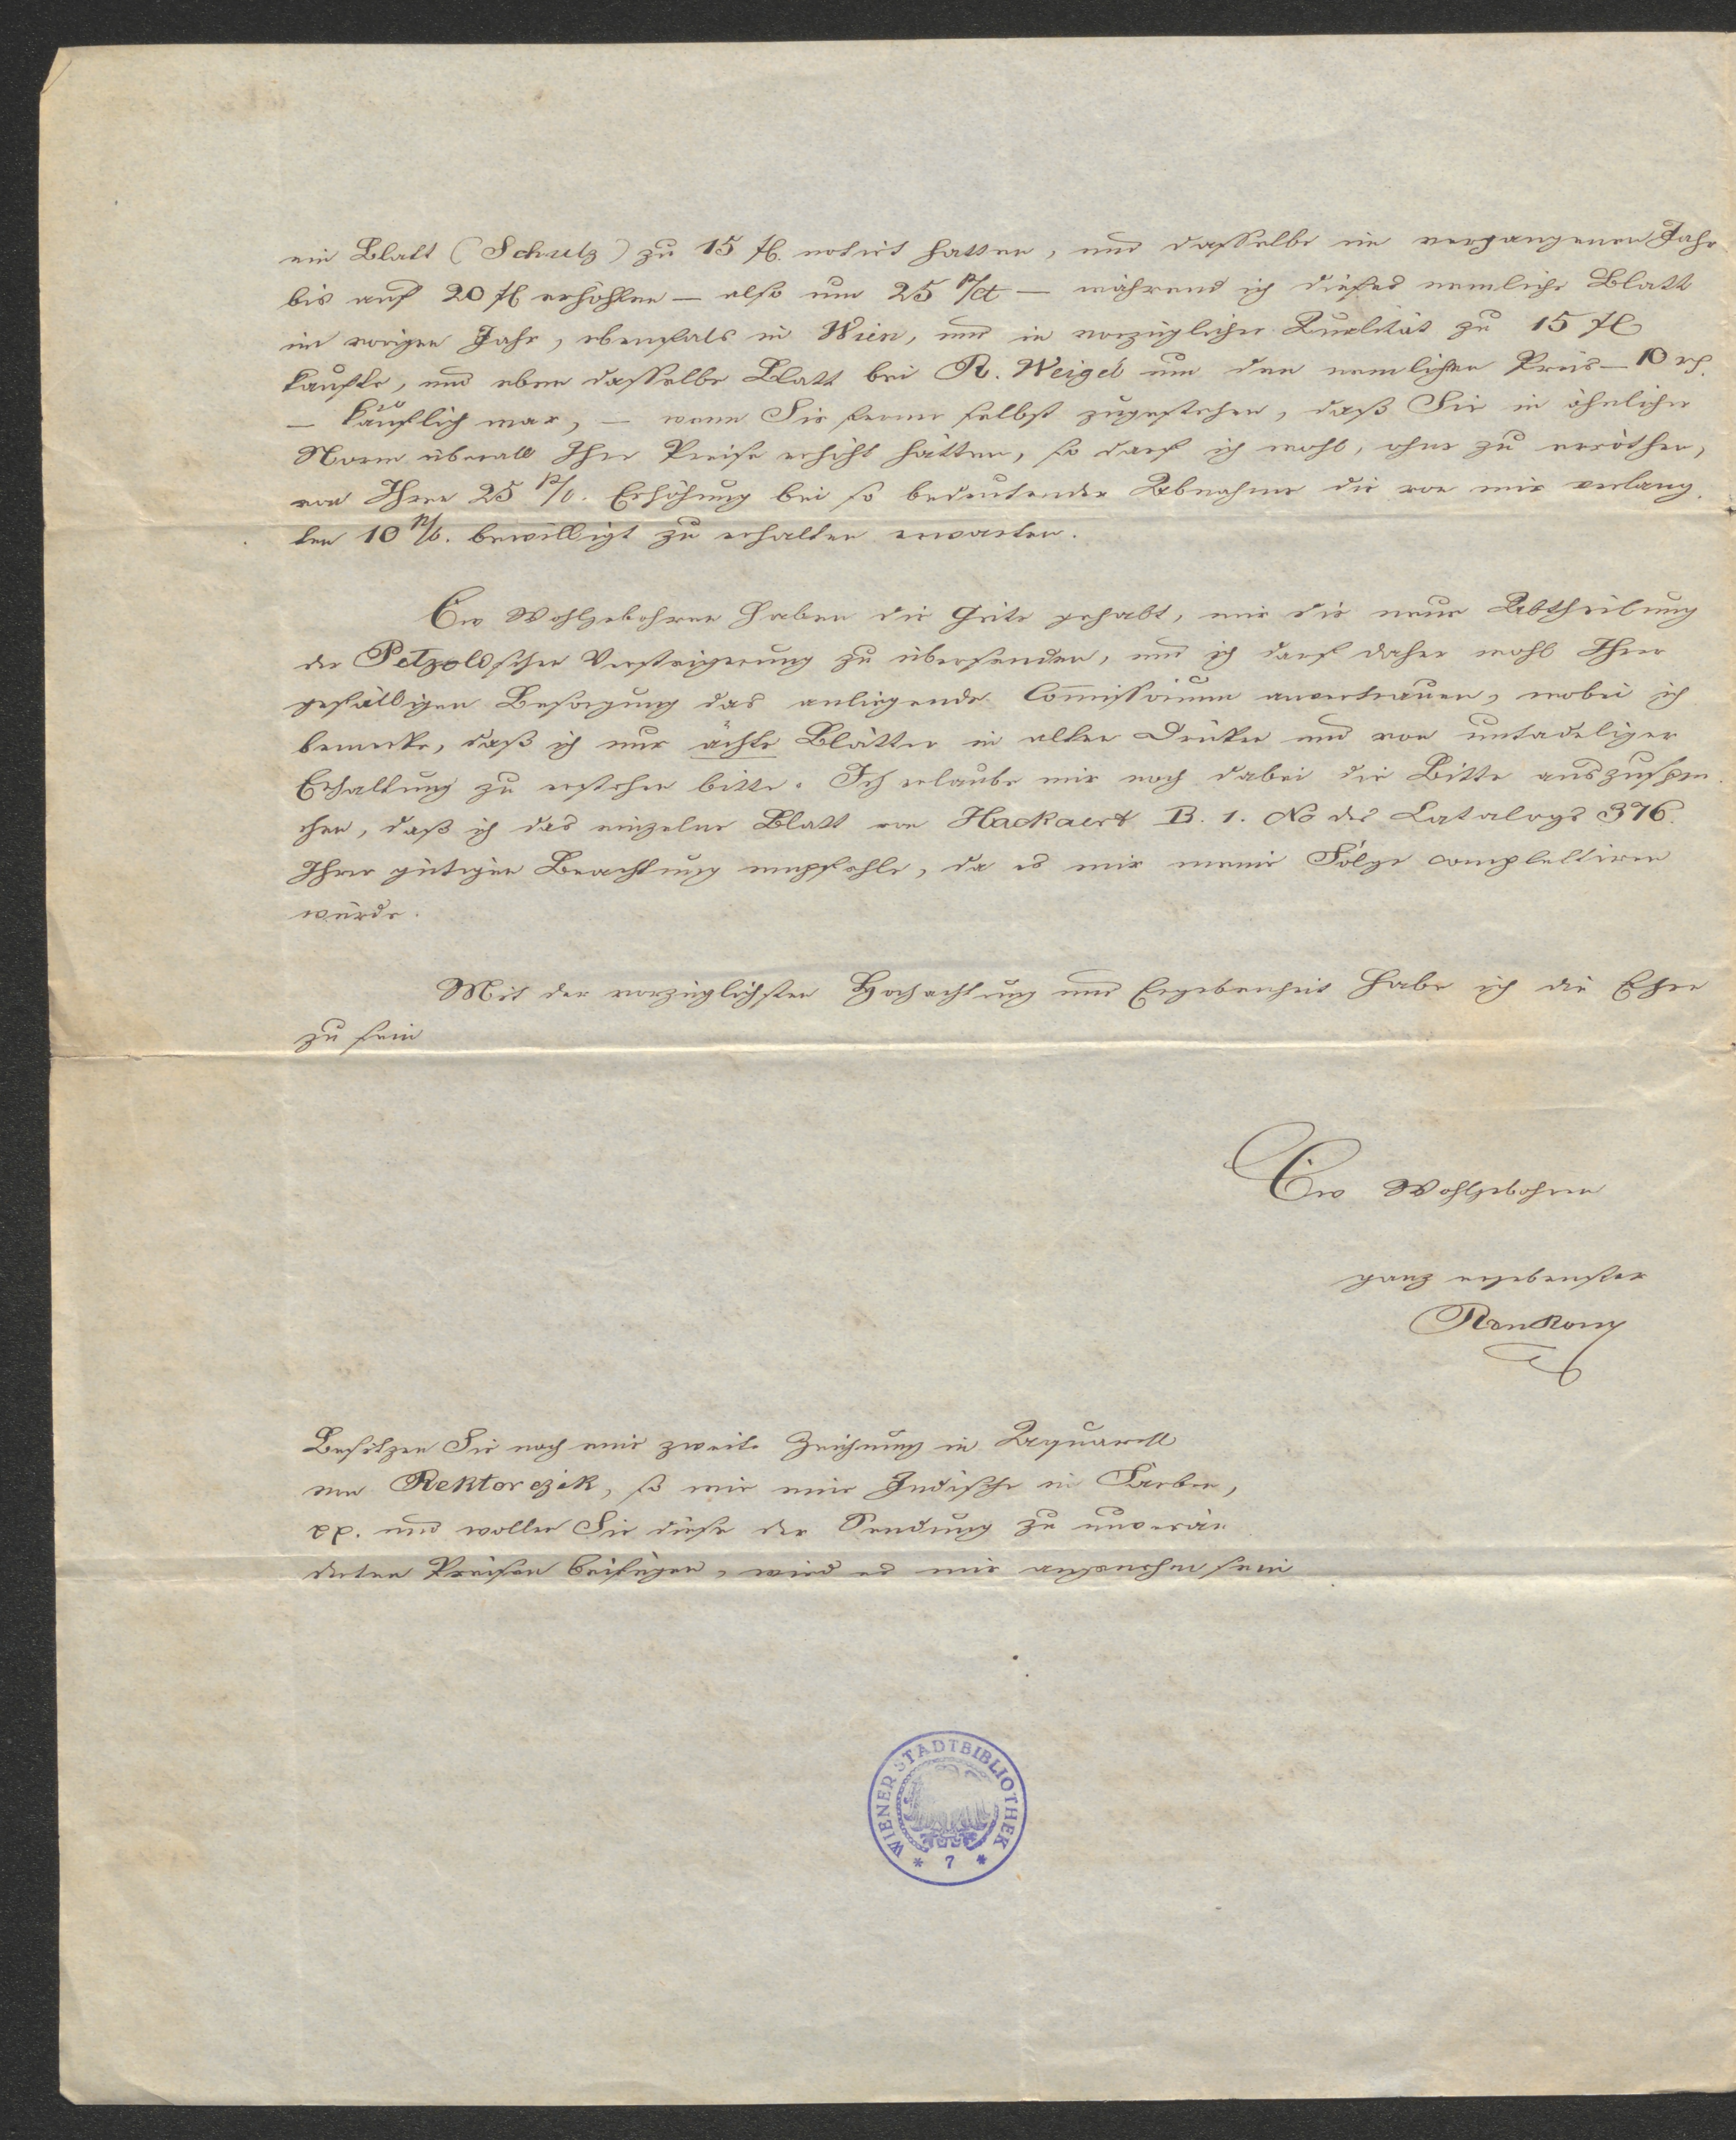 ein Blatt (Schulz) zu 15 fl. notirt hatten, und dasselbe im vergangenen Jahr
bis auf 20 fl erhöhten — also um 25 p/ct — während ich dieses nemliche Blatt
im vorigen Jahr, ebenfals in Wien, und in vorzüglicher Qualität zu 15 fl
kaufte, und eben dasselbe Blatt bei R. Weigel um den nemlichen Preis — 10 rh.
— käuflich war, — wenn Sie ferner selbst zugestehen, daß Sie in ähnlicher
Norm überall Ihre Preise erhöht hätten, so darf ich wohl, ohne zu erröthen,
von Ihrer 25 p/c. Erhöhung bei so bedeutender Abnahme die von mir verlang-
ten 10 p/c. bewilligt zu erhalten erwarten.
Ew Wohlgebohren haben die Güte gehabt, mir die neue Abtheilung
der Petzoldschen Versteigerung zu übersenden, und ich darf daher wohl Ihrer
gefälligen Besorgung das anliegende Commissorium anvertrauen, wobei ich
bemerke, daß ich nur ächte Blätter in alten Drücken und von untadeliger
Erhaltung zu erstehen bitte. Ich erlaube mir noch dabei die Bitte auszuspre-
chen, daß ich das einzelne Blatt von Hackaert B. 1. No des Catalogs 376.
Ihrer gütigen Beachtung empfehle, da es mir meine Folge completiren
würde.
Mit der vorzüglichsten Hochachtung und Ergebenheit habe ich die Ehre
zu sein
Ew Wohlgebohren
ganz ergebenster
Besitzen Sie noch eine zweite Zeichnung in Aquarell
von Rektorczik, so wie eine Indische in Farben,
pp. und wollen Sie diese der Sendung zu unverän-
derten Preisen beifügen, wird es mir angenehm sein
WIENER STADTBIBLIOTHEK
* 7 *